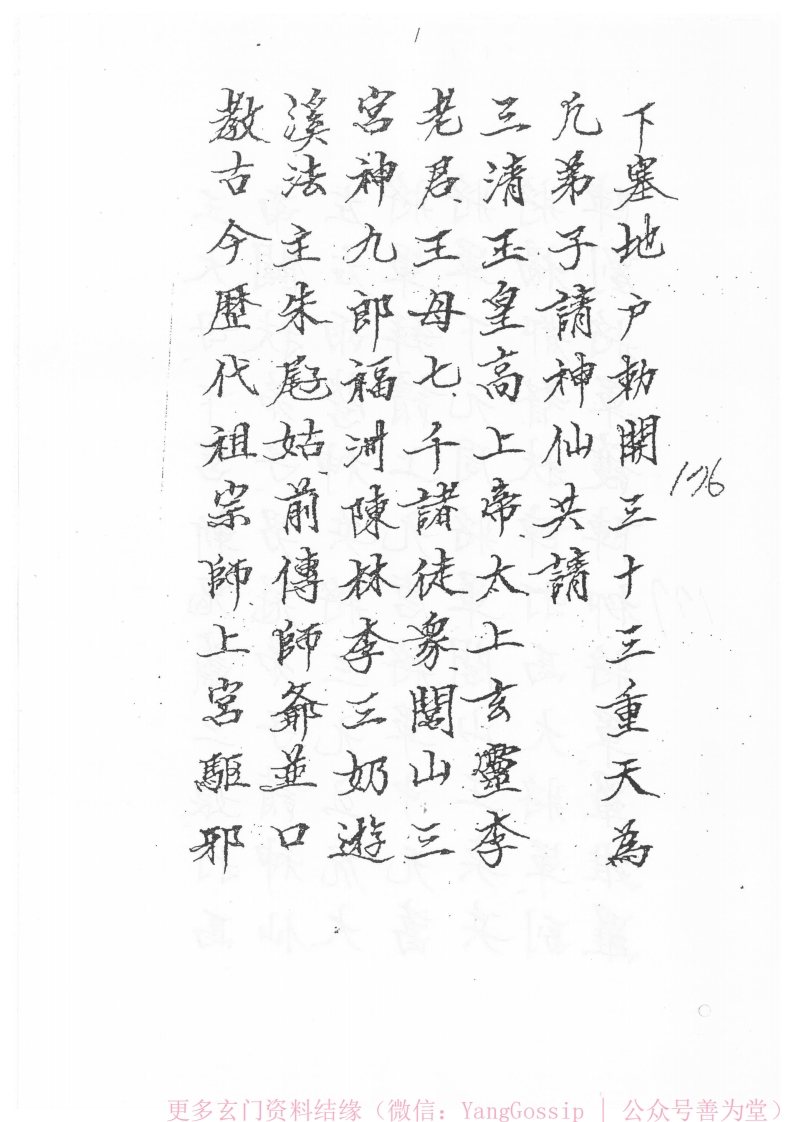 下墓地户勅開三十三重天為
凢弟子請神仙共請
三清玉皇高上帝太上玄靈李
老君王母七千諸徒衆閭山三
宮神九郎福洲陳林李三奶遊
溪法主朱尫姑前傳師爺並口
教古今歷代祖宗師上宮駆邪
176
更多玄门资料结缘（微信：YangGossip | 公众号善为堂）